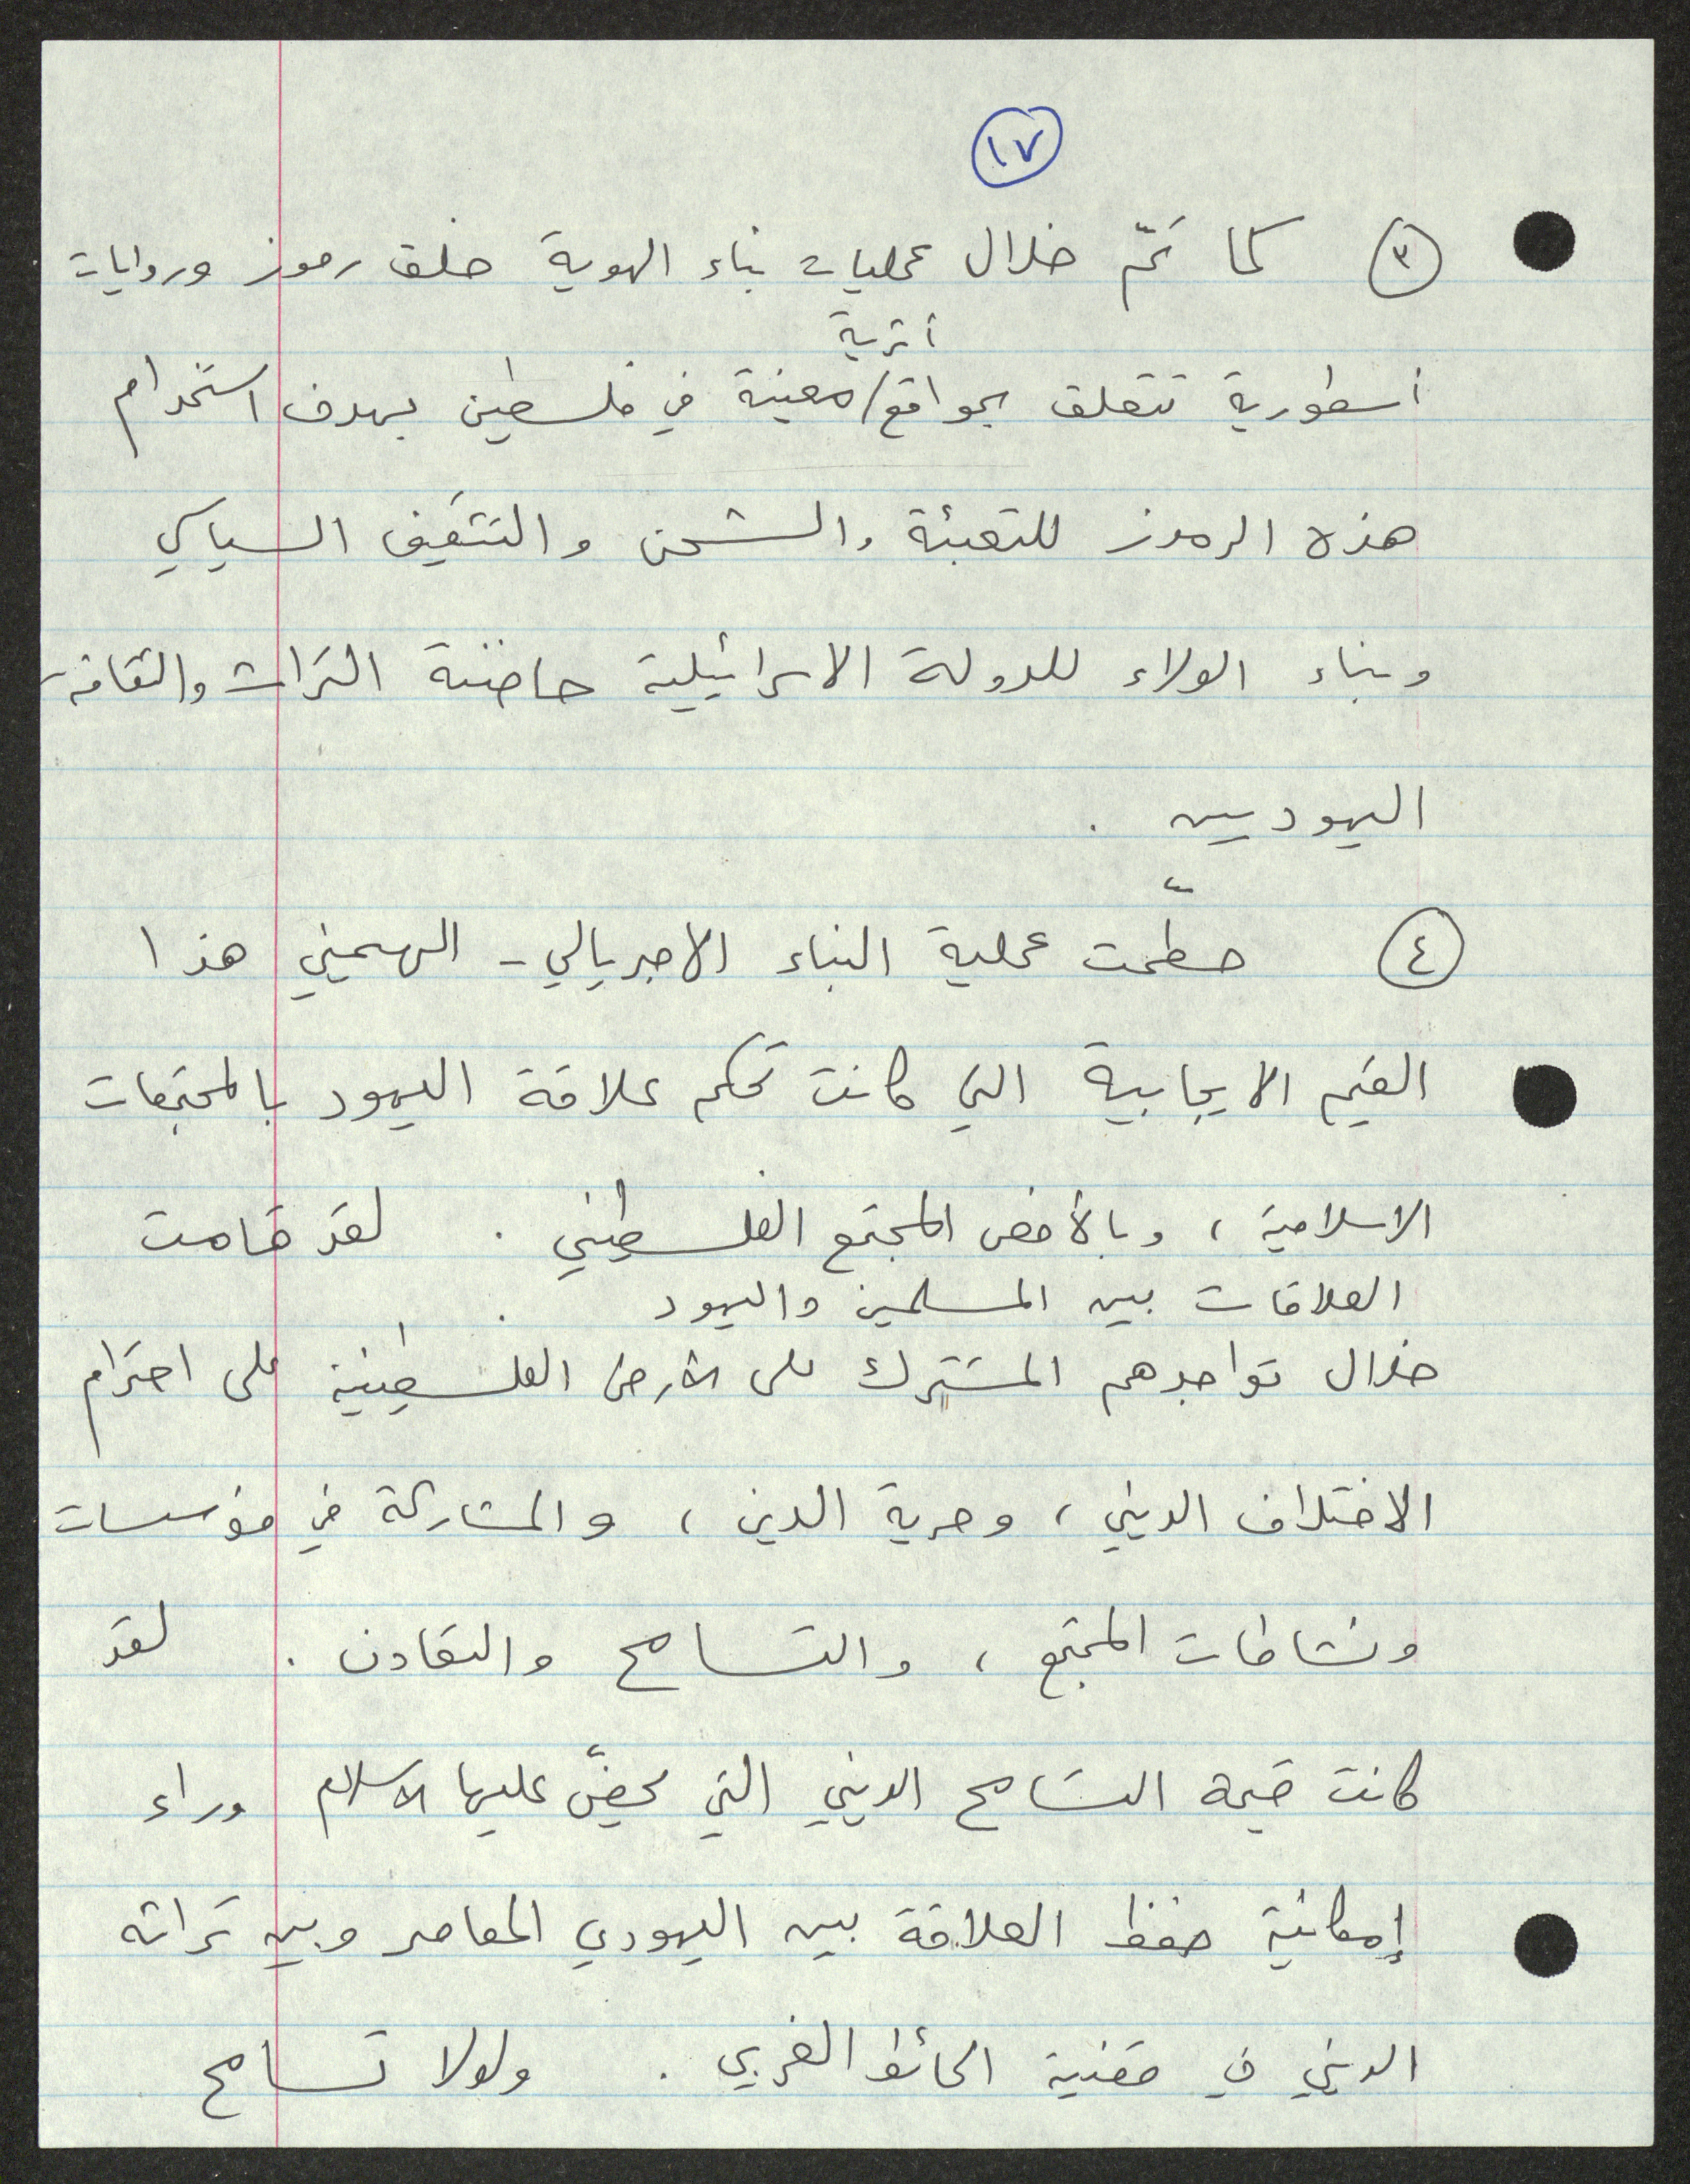 ١٧
٣ كما تمّ خلال عمليات بناء الهوية خلق رموز وروايات
أثرية
أسطورية تتعلق بمواقع/معينة في فلسطين بهدف استخدام
هذه الرموز للتعبئة والشحن والتثقيف السياسي
وبناء الولاء للدولة الاسرائيلية حاضنة التراث والثقافة
اليهوديين .
٤ حطّمت عملية البناء الامبريالي - الهيمني هذا
القيم الايجابية التي كانت تحكم علاقة اليهود بالمجتمعات
الاسلامية ، وبالأخص المجتمع الفلسطيني . لقد قامت
العلاقات بين المسلمين واليهود
خلال تواجدهم المشترك على الأرض الفلسطينية على احترام
الاختلاف الديني ، وحرية الدين ، والمشاركة في مؤسسات
ونشاطات المجتمع ، والتسامح والتعاون . لقد
كانت قيمة التسامح الديني التي يحضّ عليها الاسلام وراء
إمكانية حفظ العلاقة بين اليهودي المعاصر وبين تراثه
الديني في قضية الحائط الغربي . ولولا تسامح